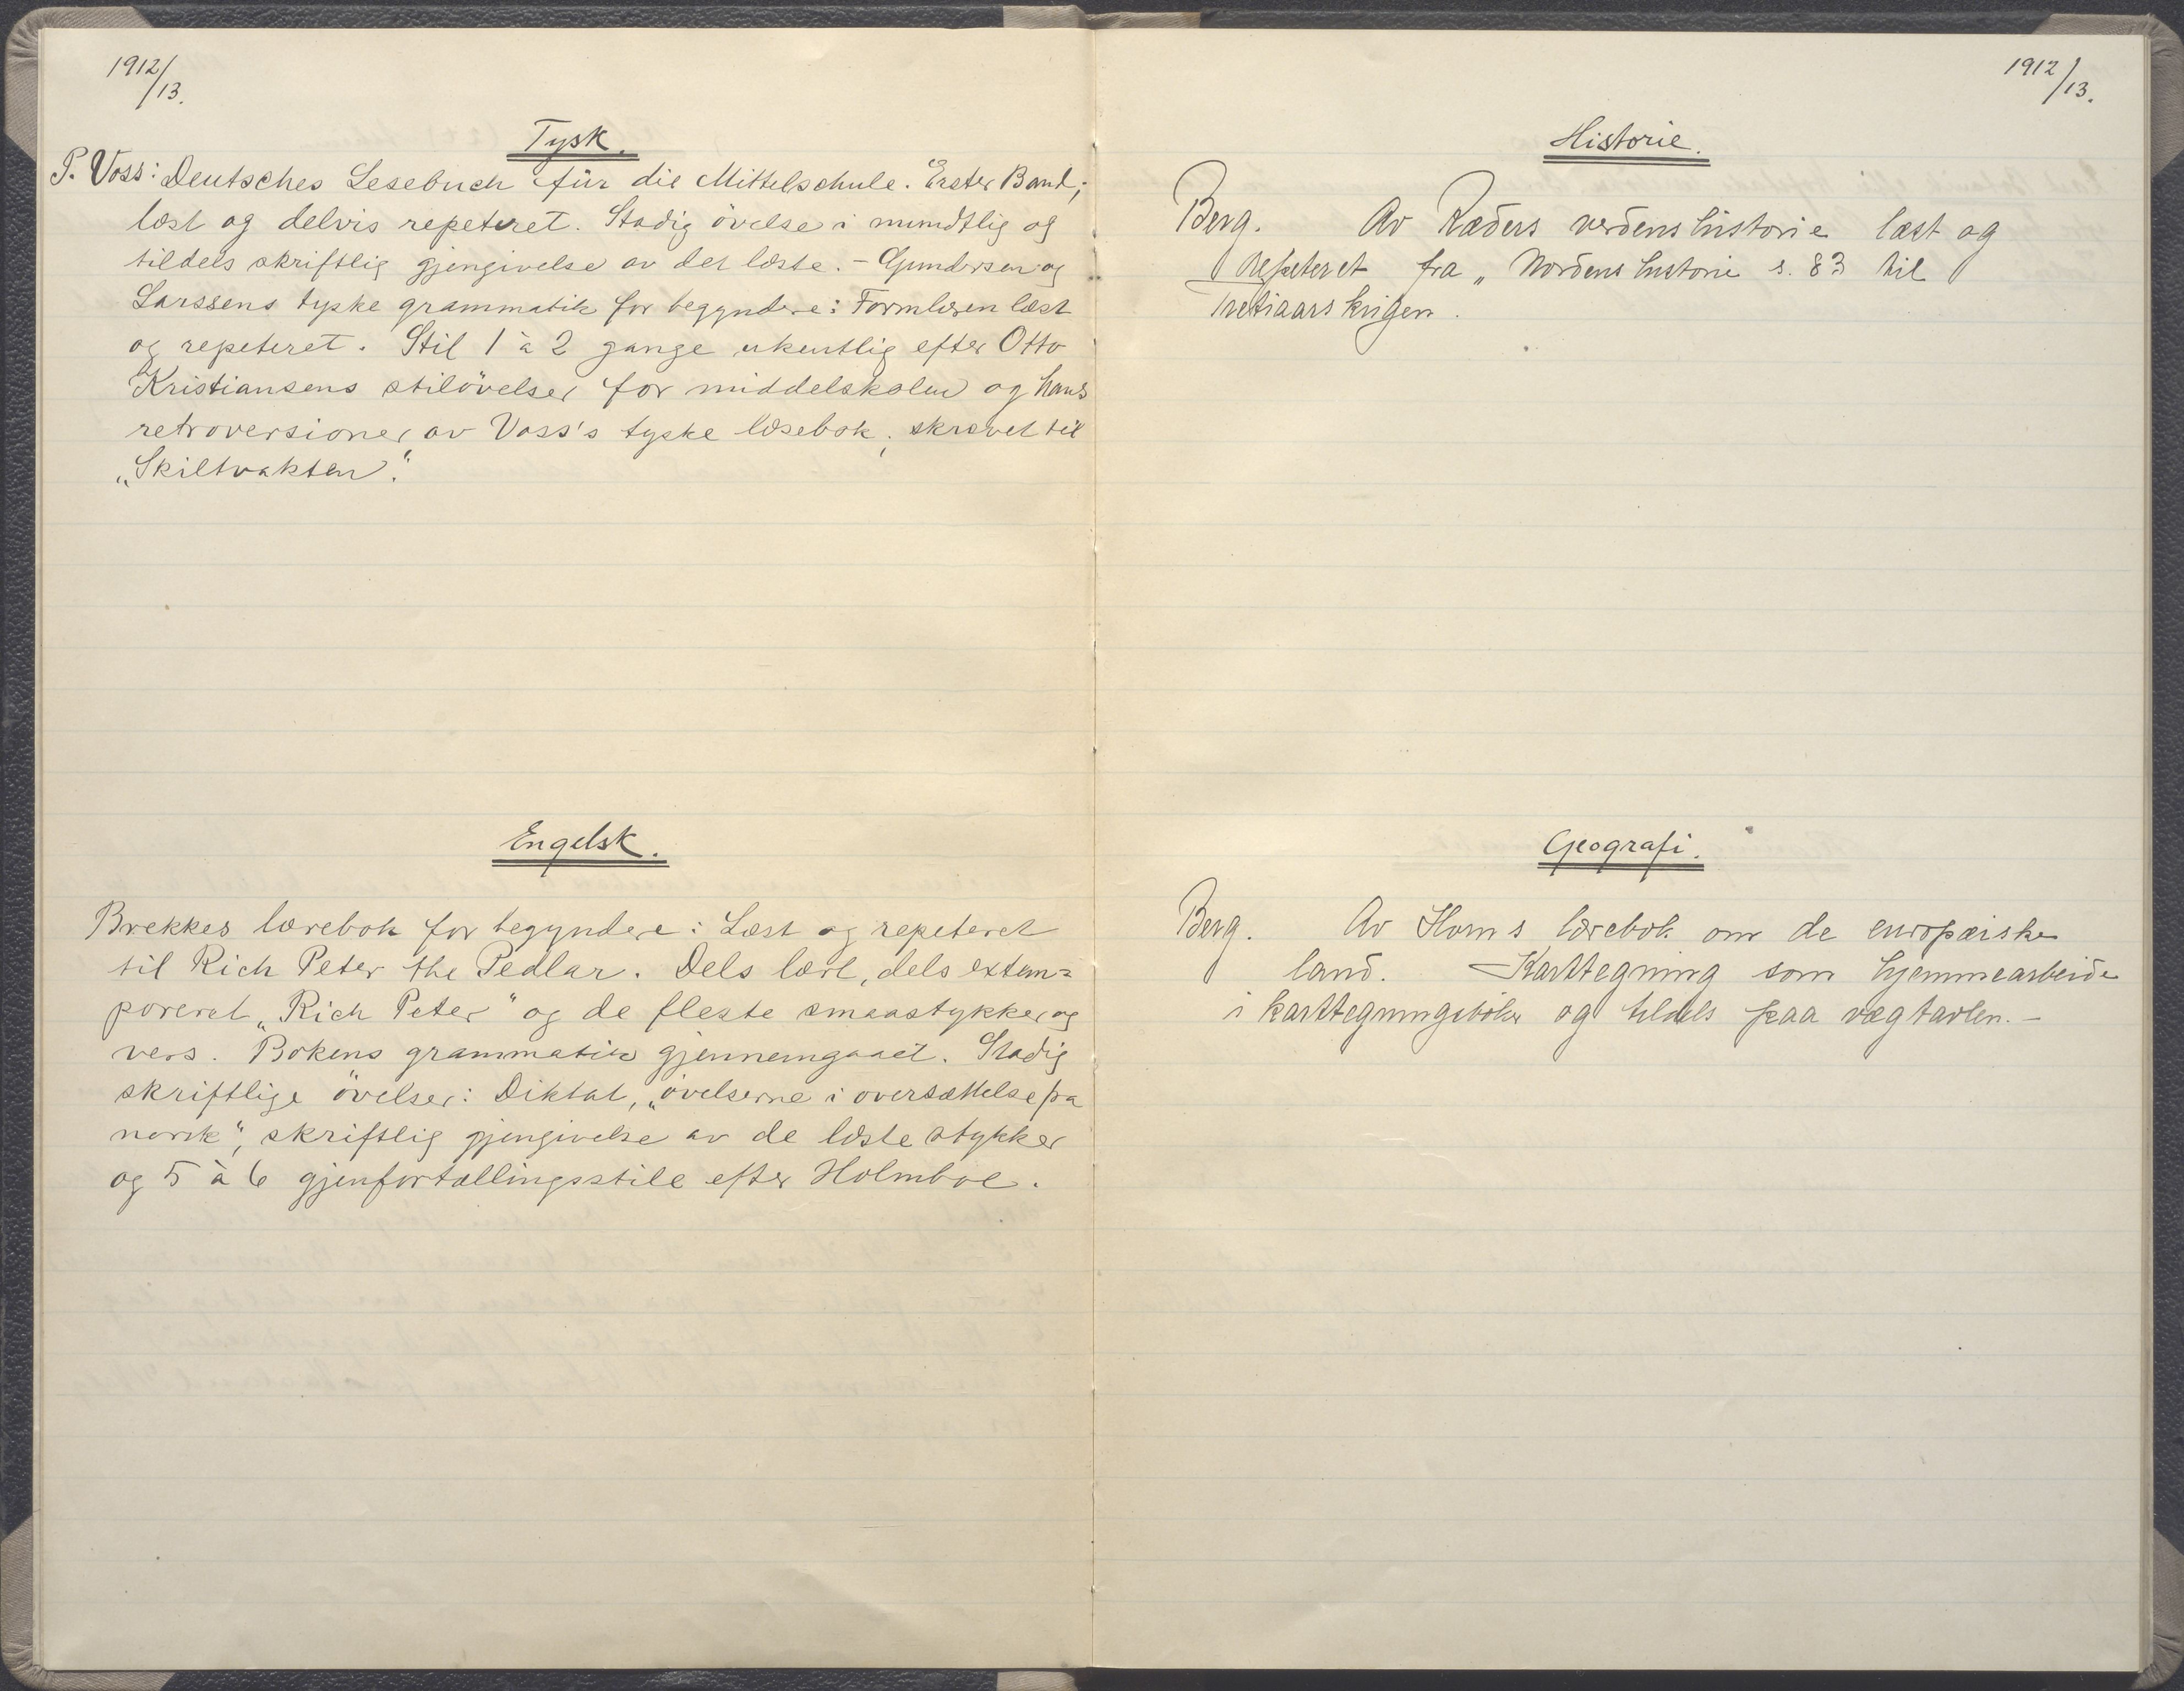 1912/13.
Tysk.
P. Voss: Deutsches Lesebuch für die Mittelschule. Erster Band;
læst og delvis repeteret. Stadig övelse i mundtlig og
tildels skriftlig gjengivelse av det læste. - Gundersen og
Larssens tyske grammatik for begyndere: Formlæren læst
og repeteret. Stil 1 à 2 gange ukentlig efter Otto
Kristiansens stilövelser for middelskolen og hans
retroversioner av Voss's tyske læsebok; skrevet til
„Skiltvakten“.
Engelsk.
Brekkes lærebok for begyndere: Læst og repeteret
til Rich Peter the Pedlar. Dels lært, dels extem=
poreret „Rich Peter“ og de fleste smaastykker og
vers. Bokens grammatik gjennemgaaet. Stadig
skriftlige övelser: Diktat, „övelserne i oversættelse fra
norsk“, skriftlig gjengivelse av de læste stykker
og 5 à 6 gjenfortællingsstile efter Holmboe.
1912/13.
Historie.
Berg. Av Ræders verdenshistorie læst og
repeteret fra „Nordens historie s. 83 til
Tretiaarskrigen.
Geografi.
Berg. Av Horns lærebok om de europæiske
land. Karttegning som hjemmearbeide
i karttegningsböker og tildels paa vægtavlen. -